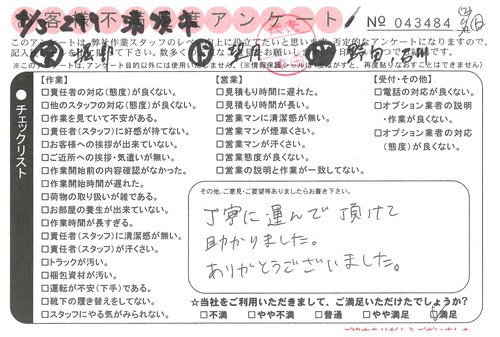 アンケート！
No 043484
チェックリスト
【作業】
□責任者の対応(態度)が良くない。
□他のスタッフの対応(態度)が良くない。
□作業を見ていて不安がある。
□責任者(スタッフ)に好感が持てない。
□お客様への挨拶が出来ていない。
□ご近所への挨拶・気遣いが無い。
□作業開始前の内容確認がなかった。
□作業開始時間が遅れた。
□荷物の取り扱いが雑である。
□お部屋の養生が出来ていない。
□作業時間が長すぎる。
□責任者(スタッフ)に清潔感が無い。
□責任者(スタッフ)が汗くさい。
□トラックが汚い。
□梱包資材が汚い。
□運転が不安(下手)である。
□靴下の履き替えをしてない。
□スタッフにやる気がみられない。
【営業】
□見積もり時間に遅れた。
□見積もり時間が長い。
□営業マンに清潔感が無い。
□営業マンが煙草くさい。
□営業マンが汗くさい。
□営業態度が良くない。
□営業の説明と作業が一致してない。
【受付・その他】
□電話の対応が良くない。
□オプション業者の説明
・作業が良くない。
□オプション業者の対応
(態度)が良くない。
その他、ご意見・ご要望等ありましたらお書き下さい。
丁寧に運んで頂けて
助かりました。
ありがとうございました。
☆当社をご利用いただきまして、ご満足いただけたでしょうか？
□不満 □やや不満 □普通 □やや満足 □満足